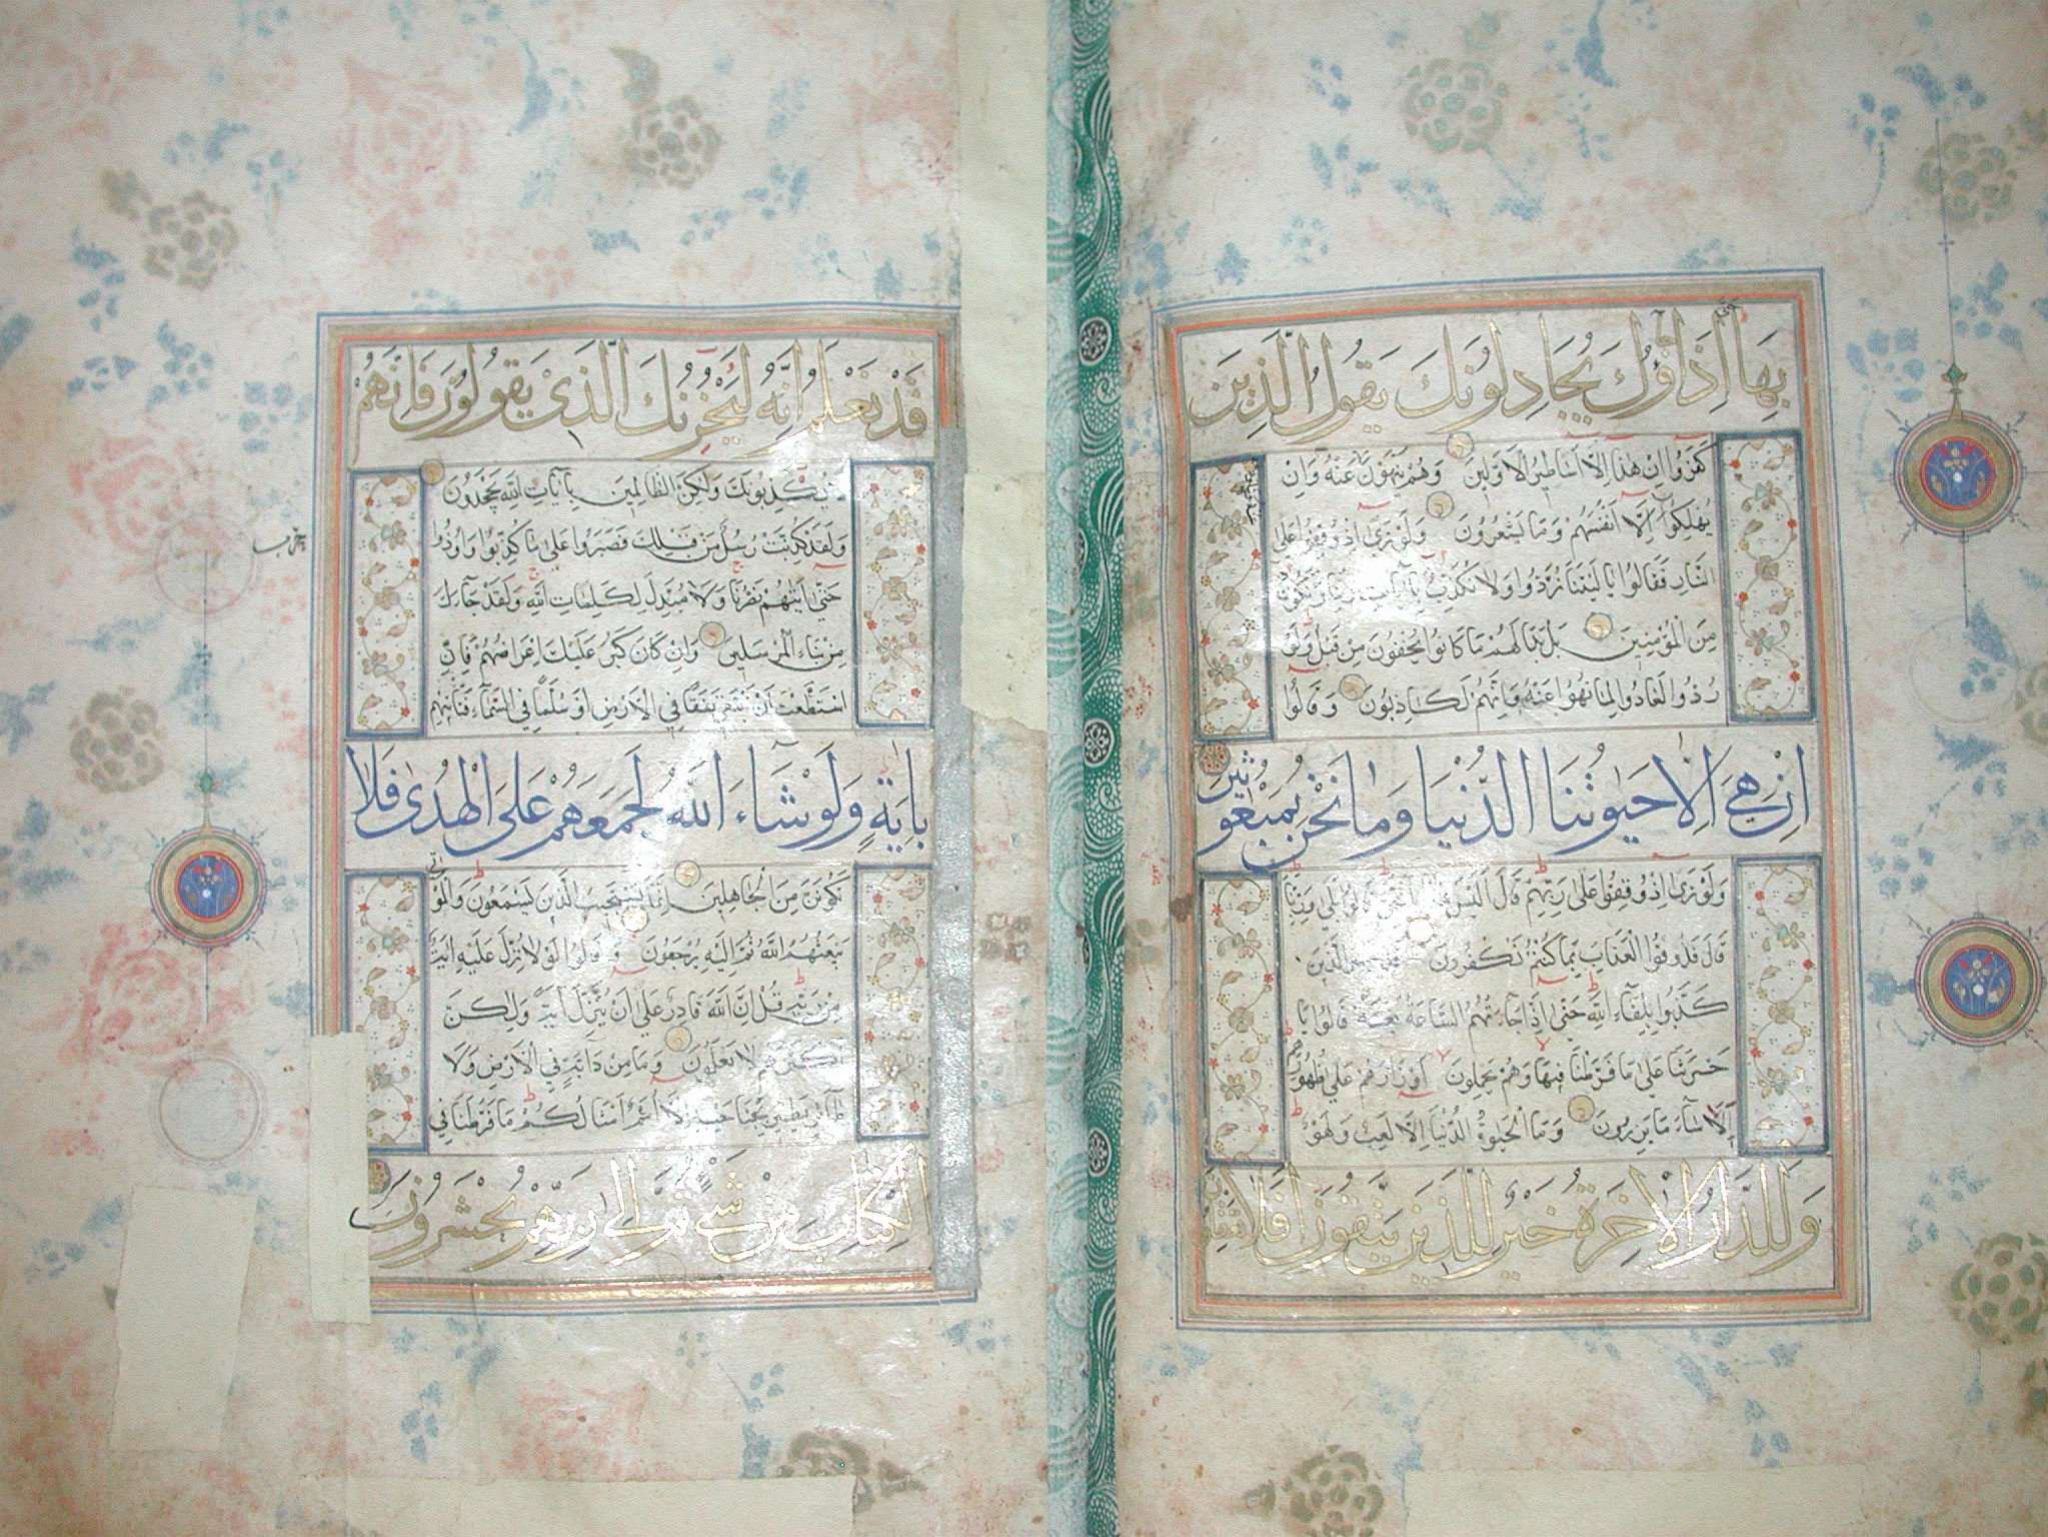 بِهَا اِذَا جَآؤُكَ يُجَادِلُونَكَ يَقُولُ الَّذِينَ
كَفَرُوا اِنْ هٰذَا اِلَّا اَسَاطِيرُ الْاَوَّلِينَ وَهُمْ يَنْهَوْنَ عَنْهُ وَاِنْ
يُهْلِكُونَ اِلَّا اَنْفُسَهُمْ وَمَا يَشْعُرُونَ وَلَوْ تَرٰى اِذْ وُقِفُوا عَلَى
النَّارِ فَقَالُوا يَا لَيْتَنَا نُرَدُّ وَلَا نُكَذِّبُ بِاٰيَاتِ رَبِّنَا وَنَكُونَ
مِنَ الْمُؤْمِنِينَ بَلْ بَدَا لَهُمْ مَا كَانُوا يُخْفُونَ مِنْ قَبْلُ وَلَوْ
رُدُّوا لَعَادُوا لِمَا نُهُوا عَنْهُ وَاِنَّهُمْ لَكَاذِبُونَ وَقَالُوا
اِنْ هِيَ اِلَّا حَيٰوتُنَا الدُّنْيَا وَمَا نَحْنُ بِمَبْعُوثِينَ
وَلَوْ تَرٰى اِذْ وُقِفُوا عَلٰى رَبِّهِمْ قَالَ اَلَيْسَ هٰذَا بِالْحَقِّ قَالُوا بَلٰى وَرَبِّنَا
قَالَ فَذُوقُوا الْعَذَابَ بِمَا كُنْتُمْ تَكْفُرُونَ قَدْ خَسِرَ الَّذِينَ
كَذَّبُوا بِلِقَاءِ اللّٰهِ حَتّٰى اِذَا جَاءَتْهُمُ السَّاعَةُ بَغْتَةً قَالُوا يَا
حَسْرَتَنَا عَلٰى مَا فَرَّطْنَا فِيهَا وَهُمْ يَحْمِلُونَ اَوْزَارَهُمْ عَلٰى ظُهُورِهِمْ
اَلَا سَاءَ مَا يَزِرُونَ وَمَا الْحَيٰوةُ الدُّنْيَا اِلَّا لَعِبٌ وَلَهْوٌ
وَلَلدَّارُ الْاٰخِرَةُ خَيْرٌ لِلَّذِينَ يَتَّقُونَ اَفَلَا تَعْقِلُونَ
قَدْ نَعْلَمُ اِنَّهُ لَيَحْزُنُكَ الَّذِي يَقُولُونَ فَاِنَّهُمْ
لَا يُكَذِّبُونَكَ وَلٰكِنَّ الظَّالِمِينَ بِاٰيَاتِ اللّٰهِ يَجْحَدُونَ
وَلَقَدْ كُذِّبَتْ رُسُلٌ مِنْ قَبْلِكَ فَصَبَرُوا عَلٰى مَا كُذِّبُوا وَاُوذُوا
حَتّٰى اَتٰيهُمْ نَصْرُنَا وَلَا مُبَدِّلَ لِكَلِمَاتِ اللّٰهِ وَلَقَدْ جَاءَكَ
مِنْ نَبَاءِ الْمُرْسَلِينَ وَاِنْ كَانَ كَبُرَ عَلَيْكَ اِعْرَاضُهُمْ فَاِنِ
اسْتَطَعْتَ اَنْ تَبْتَغِيَ نَفَقًا فِي الْاَرْضِ اَوْ سُلَّمًا فِي السَّمَاءِ فَتَاْتِيَهُمْ
بِاٰيَةٍ وَلَوْ شَاءَ اللّٰهُ لَجَمَعَهُمْ عَلَى الْهُدٰى فَلَا
تَكُونَنَّ مِنَ الْجَاهِلِينَ اِنَّمَا يَسْتَجِيبُ الَّذِينَ يَسْمَعُونَ وَالْمَوْتٰى
يَبْعَثُهُمُ اللّٰهُ ثُمَّ اِلَيْهِ يُرْجَعُونَ وَقَالُوا لَوْلَا نُزِّلَ عَلَيْهِ اٰيَةٌ
مِنْ رَبِّهِ قُلْ اِنَّ اللّٰهَ قَادِرٌ عَلٰى اَنْ يُنَزِّلَ اٰيَةً وَلٰكِنَّ
اَكْثَرَهُمْ لَا يَعْلَمُونَ وَمَا مِنْ دَابَّةٍ فِي الْاَرْضِ وَلَا
طَائِرٍ يَطِيرُ بِجَنَاحَيْهِ اِلَّا اُمَمٌ اَمْثَالُكُمْ مَا فَرَّطْنَا فِي
الْكِتَابِ مِنْ شَيْءٍ ثُمَّ اِلٰى رَبِّهِمْ يُحْشَرُونَ